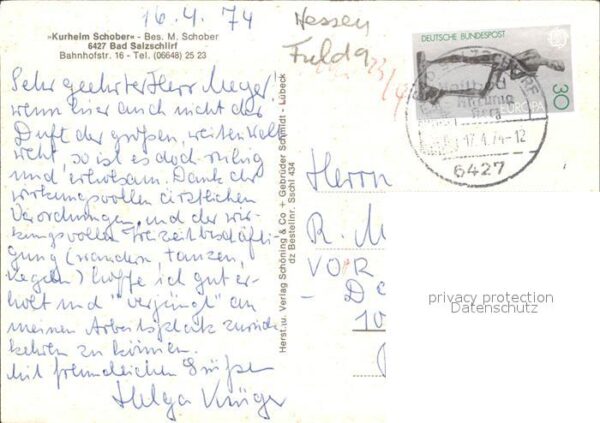 16.4.74
»Kurheim Schober« - Bes. M. Schober
6427 Bad Salzschlirf
Bahnhofstr. 16 - Tel. (06648) 25 23
Sehr geehrter Herr Meyer!
wenn hier auch nicht der
Duft der großen, weiten Welt
weht, so ist es doch ruhig
und erholsam. Dank der
wirkungsvollen ärztlichen
Verordnungen und der wir-
kungsvollen Freizeitbeschäfti-
gung (wandern, tanzen,
kegeln) hoffe ich gut er-
holt und "verjüngt" an
meinen Arbeitsplatz zurück
kehren zu können.
Mit freundlichen Grüßen
Helga Krüger
Herst. u. Verlag Schöning & Co + Gebrüder Schmidt - Lübeck
dz Bestellnr. Sschl 434
Hessen
Fulda
DEUTSCHE BUNDESPOST
30
EUROPA
17.4.74-12
6427
Herrn
R. M
VOR
- D
10
privacy protection
Datenschutz